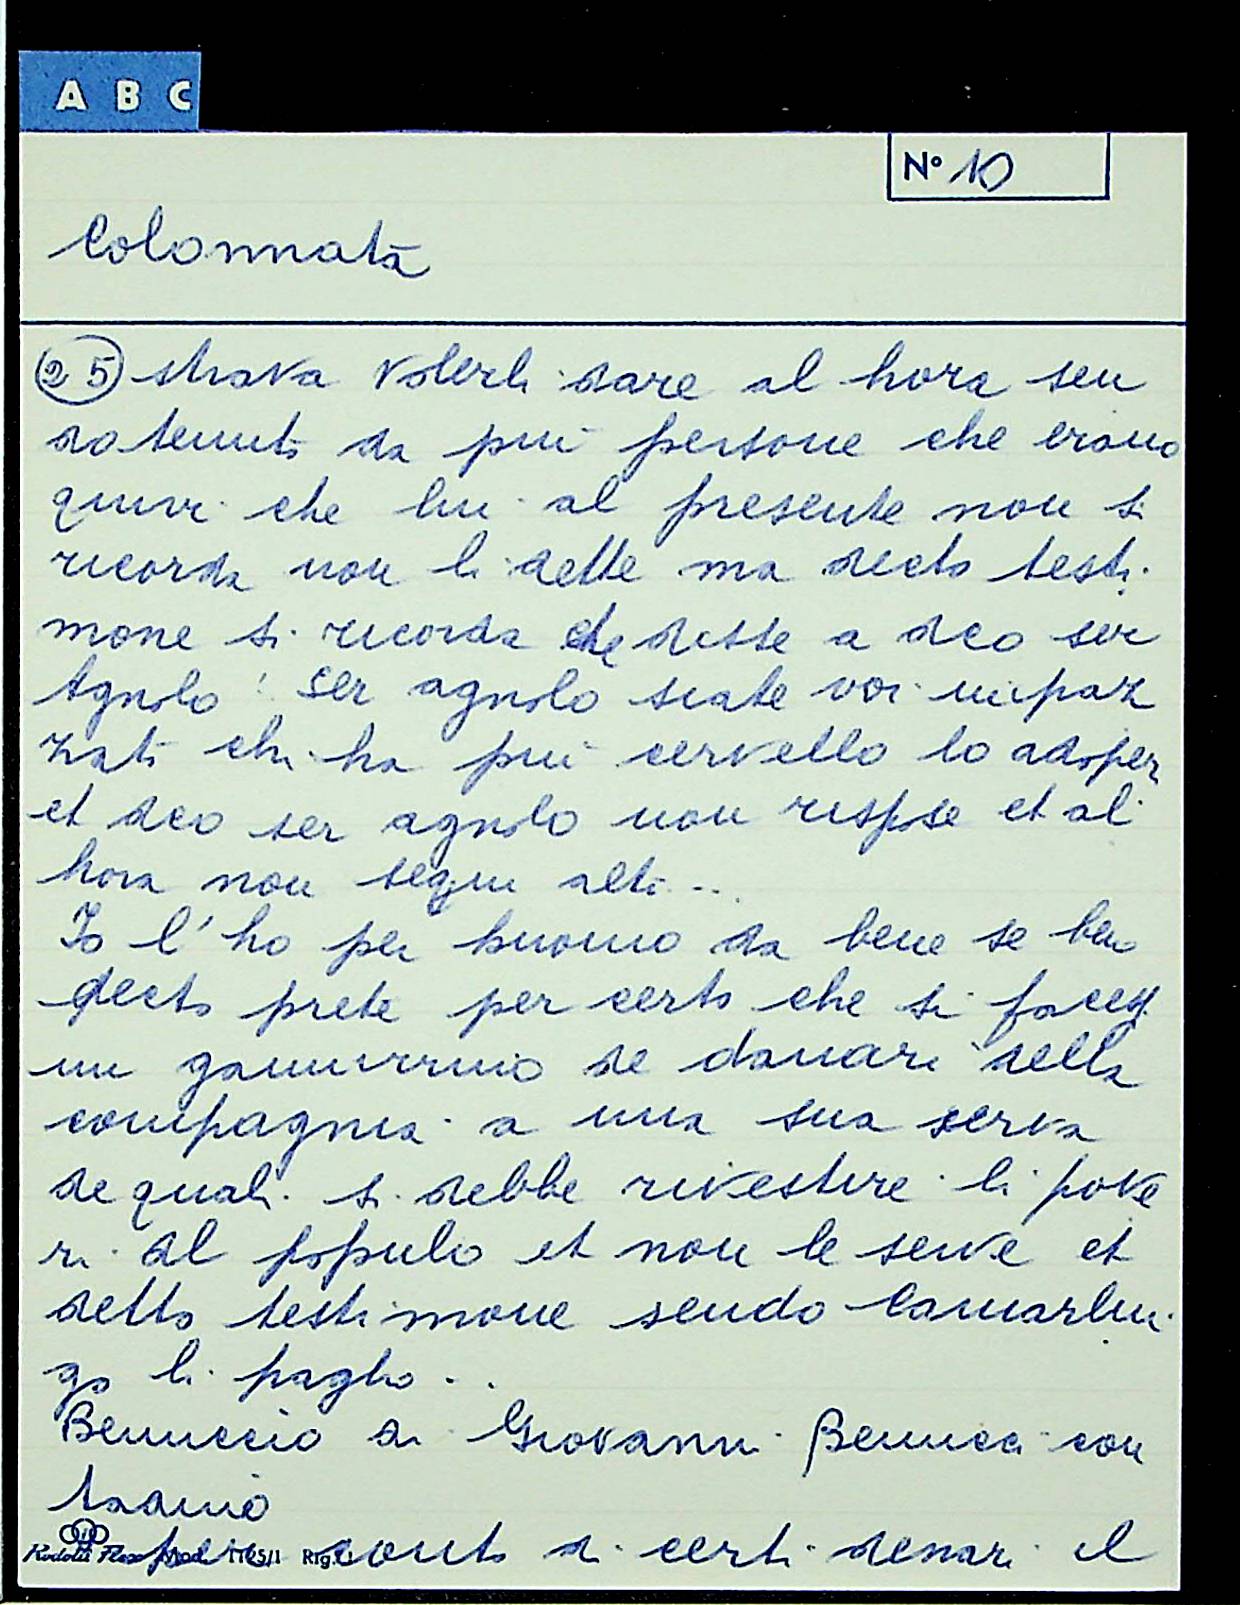 A B C
N° 10
Colonnata
(25) strava volerli dare al hora sen
do tenuto da più persone che erano
quivi che lui al presente non si
ricorda non li dette ma decto testi
mone si ricorda che disse a dco ser
Agnolo : ser agnolo siate voi impaz
zato chi ha più cervello lo adoper
et dco ser agnolo non rispose et al
hora non segui altro ..
Io l'ho per huomo da bene se ben
decto prete per certo che si facess
un gamurrino de danari della
compagnia a una sua serva
de quali si debbe rivestire li pove
ri al populo et non le serve et
detto testimone sendo Camarlin
go li pagho ..
Benuccio di Giovanni Benucci con
tadino
per conto di certi denari il